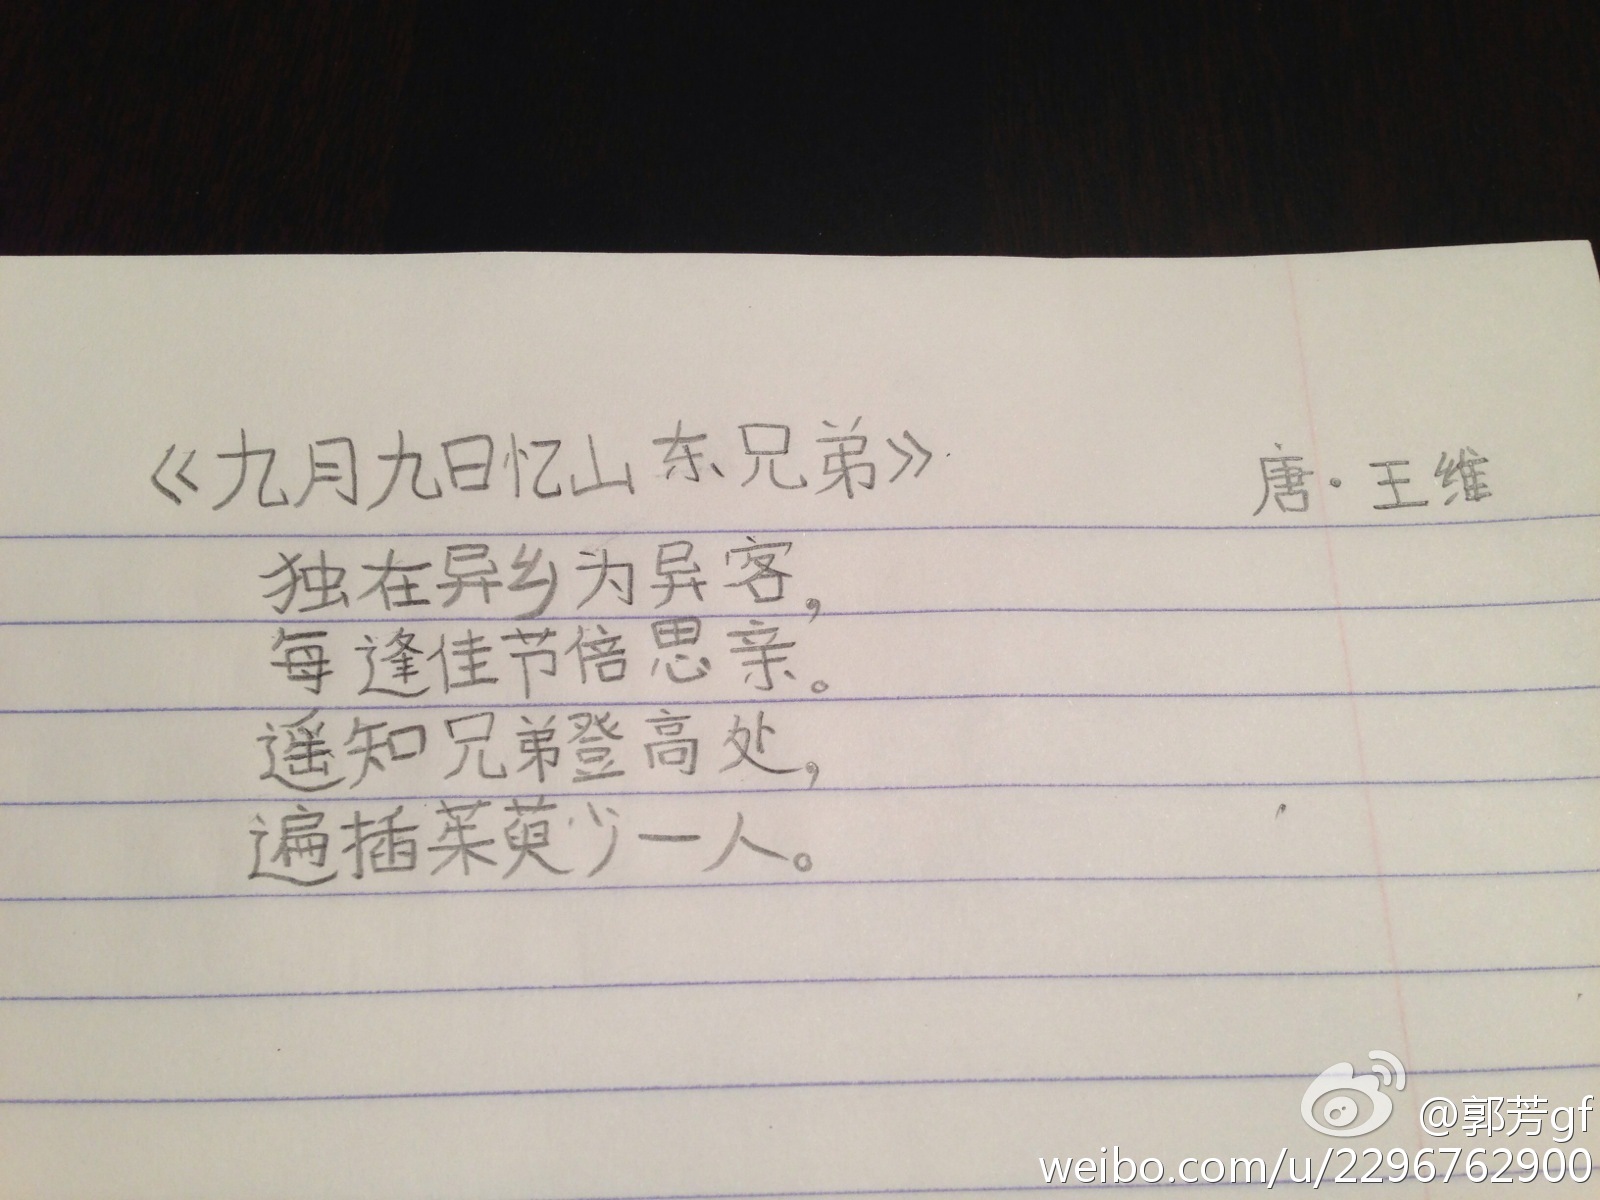 《九月九日忆山东兄弟》 唐·王维
独在异乡为异客,
每逢佳节倍思亲。
遥知兄弟登高处,
遍插茱萸少一人。
@郭芳gf
weibo.com/u/2296762900